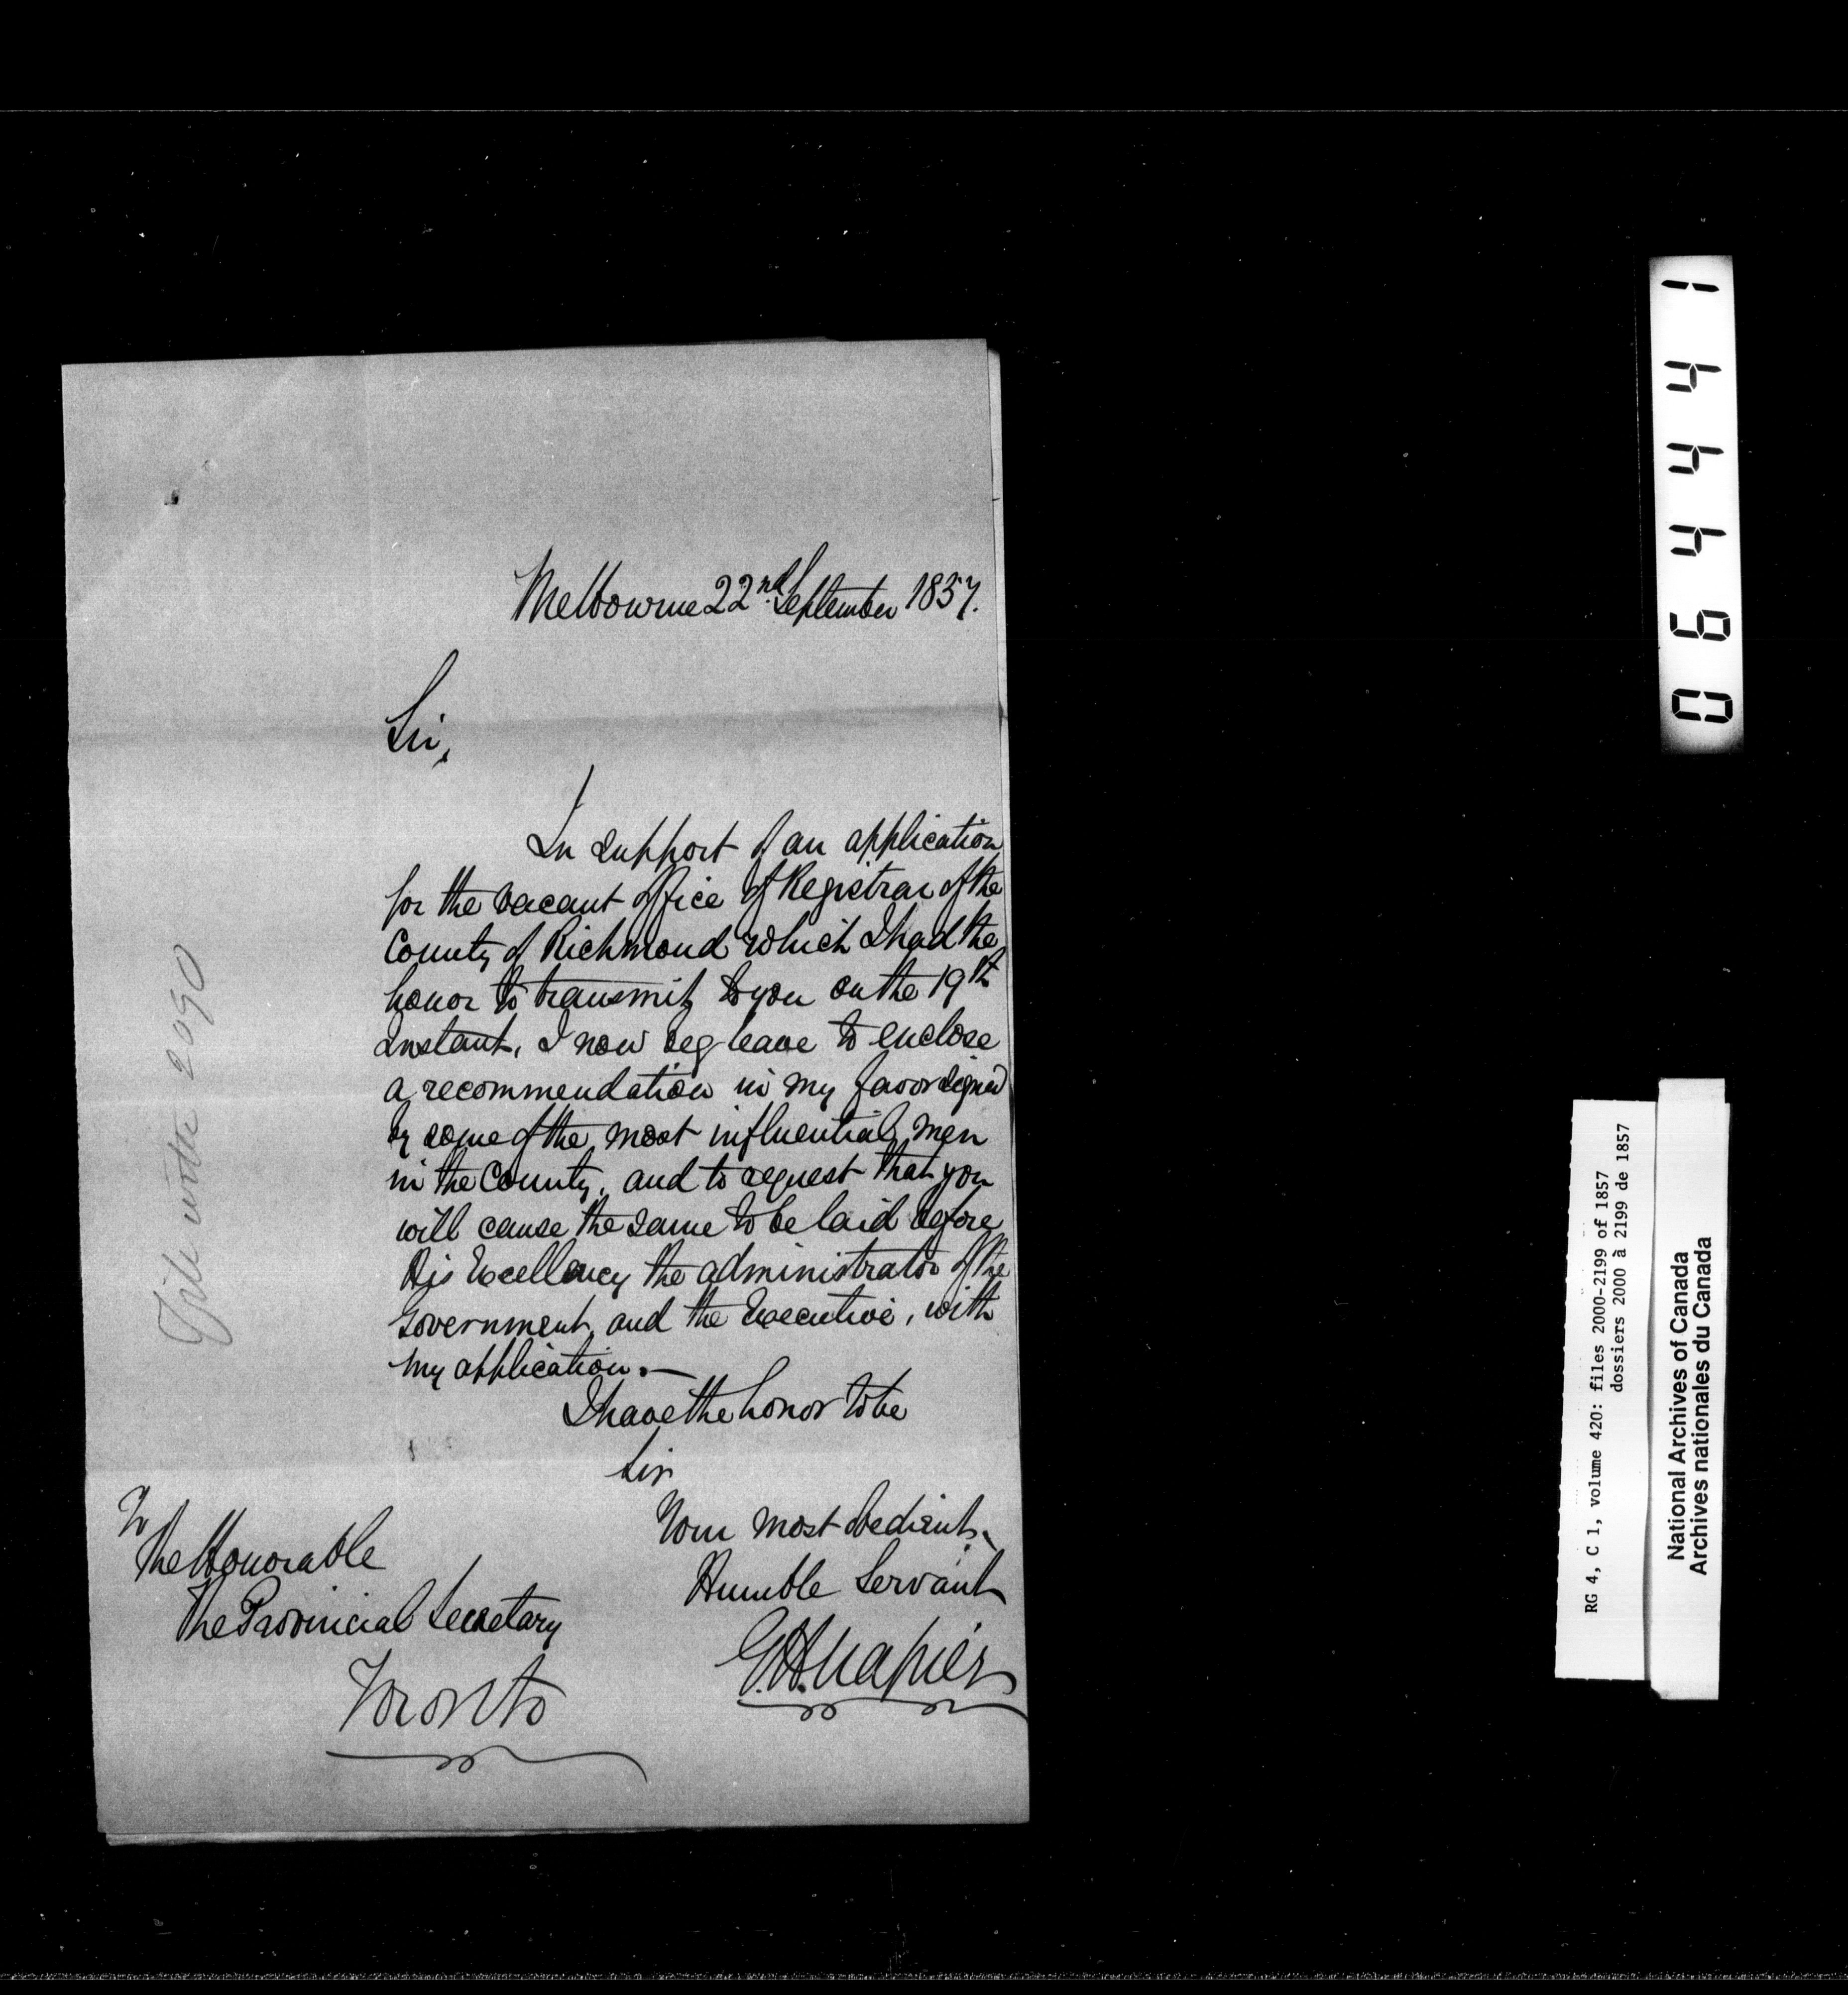 Melbourne 22nd September 1857.
Sir,
In support of an application
for the vacant office of Registrar of the
County of Richmond which I had the
honor to transmit to you on the 19th
Instant, I now beg leave to enclose
a recommendation in my favor signed
by some of the most influential men
in the County, and to request that you
will cause the same to be laid before
His Excellency the administrator of the
Government, and the Executive, with
my application.—
I have the honor to be
Sir
Your most obedient
Humble Servant
G.H. Napier
To
The Honorable
The Provincial Secretary
Toronto
File with 2090
064441
RG 4, C 1, volume 420: files 2000-2199 of 1857
dossiers 2000 à 2199 de 1857
National Archives of Canada
Archives nationales du Canada